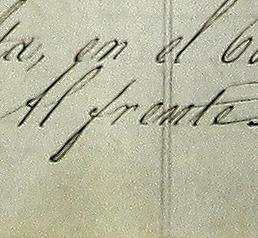 en el
Al frente